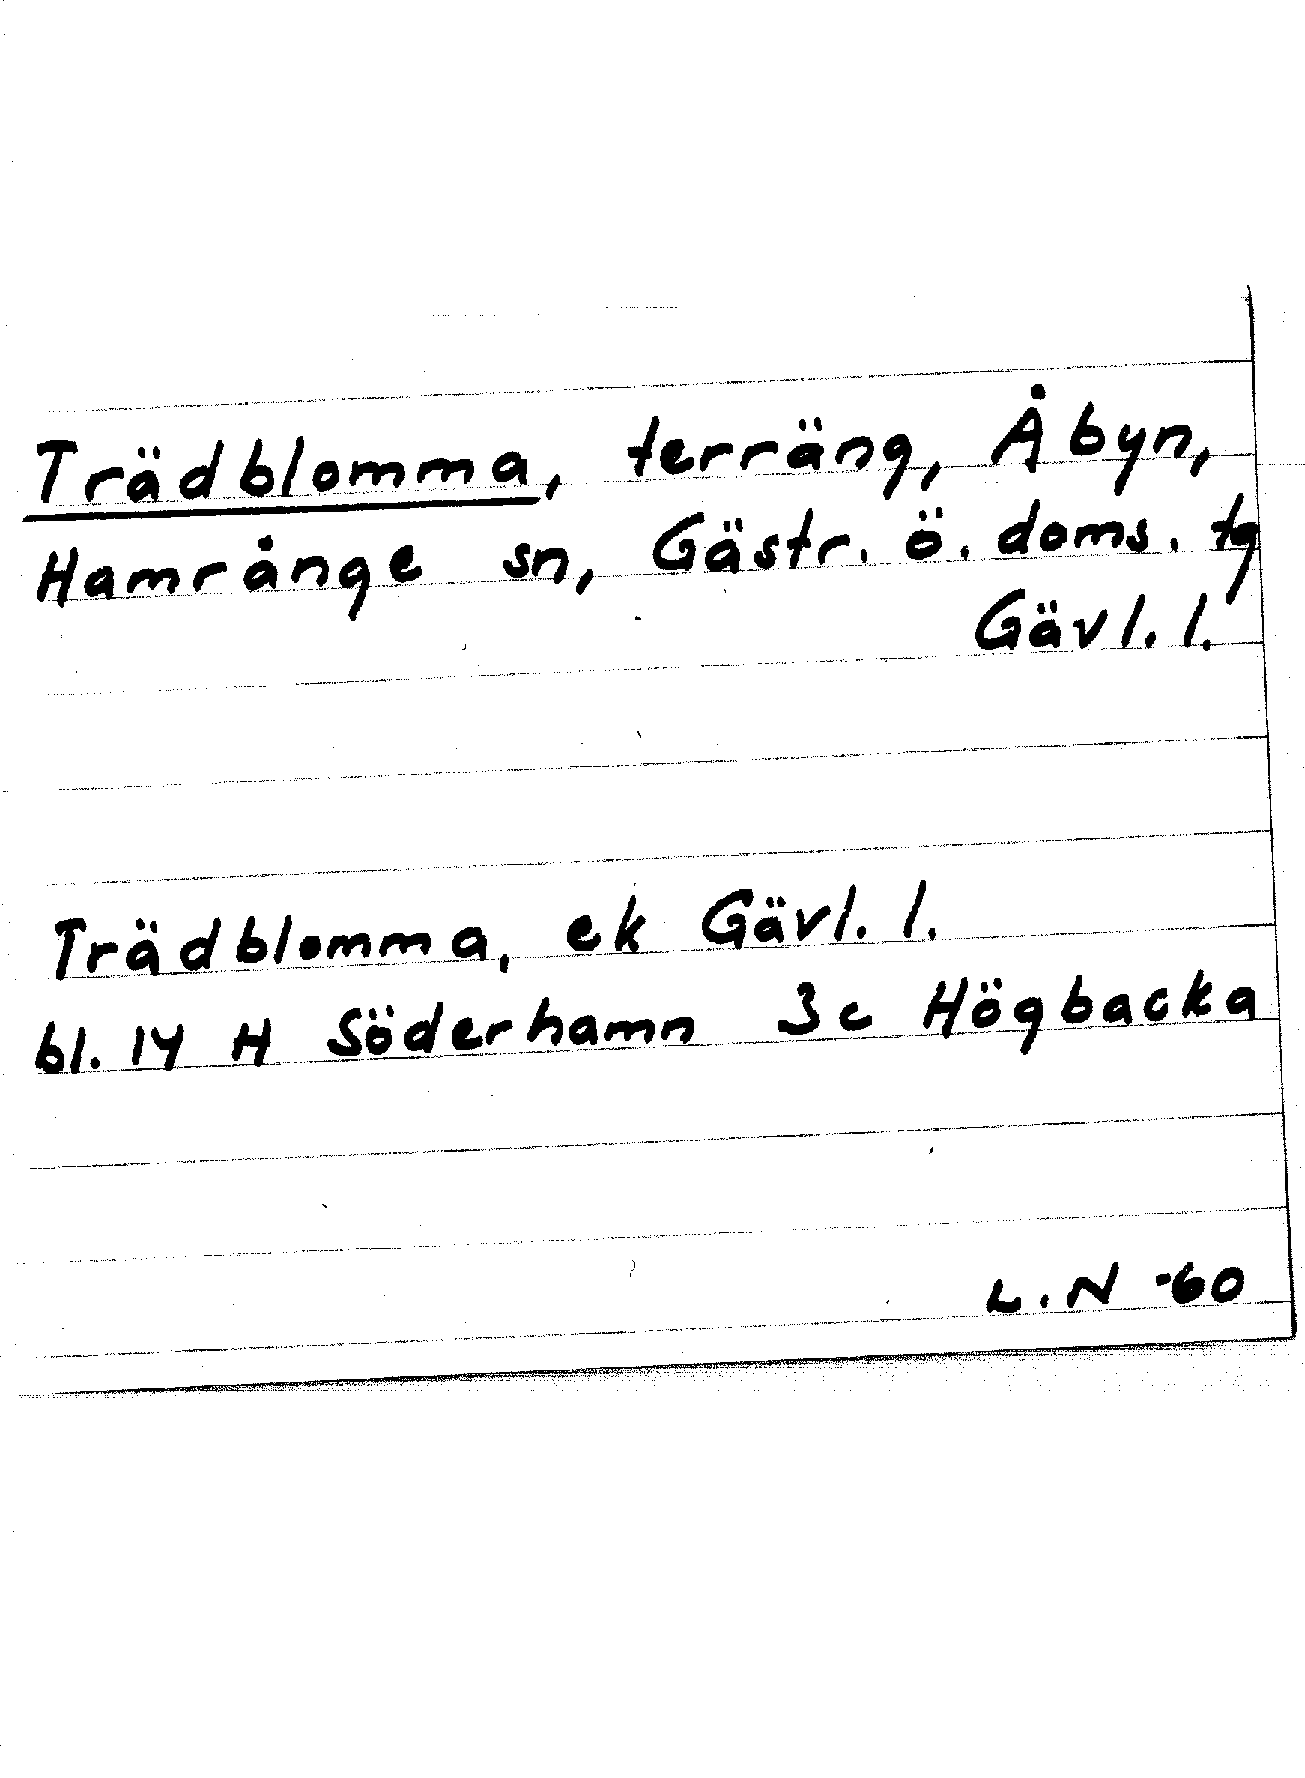 Trädblomma, terräng, Åbyn,
Hamrånge sn, Gästr. ö. doms. tg
Gävl. l.
Trädblomma, ek Gävl. l.
bl. 14 H Söderhamn 3c Högbacka
L. N -60